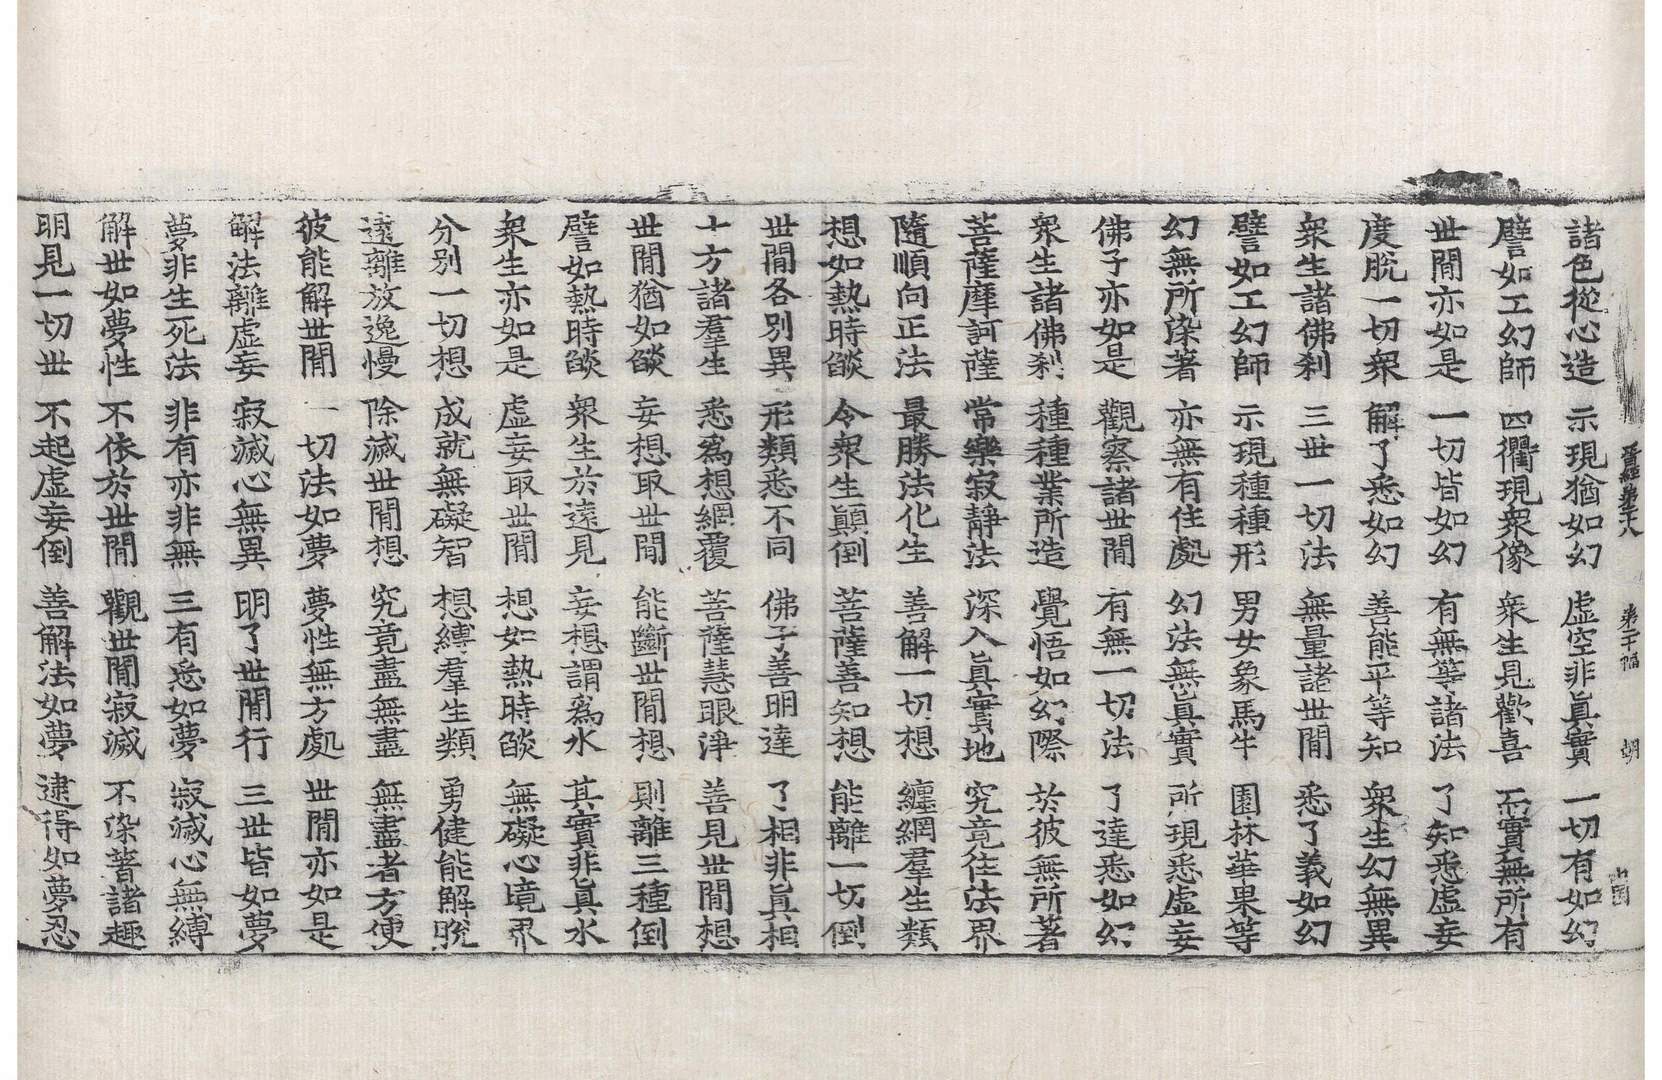 晉經第二十八 第二十幅 朝
諸色從心造 示現猶如幻 虛空非眞實 一切有如幻
譬如工幻師 四衢現衆像 衆生見歡喜 而實無所有
世閒亦如是 一切皆如幻 有無等諸法 了知悉虛妄
度脫一切衆 解了悉如幻 善能平等知 衆生幻無異
衆生諸佛刹 三世一切法 無量諸世閒 悉了義如幻
譬如工幻師 示現種種形 男女象馬牛 園林華果等
幻無所染著 亦無有住處 幻法無眞實 所現悉虛妄
佛子亦如是 觀察諸世閒 有無一切法 了達悉如幻
衆生諸佛刹 種種業所造 覺悟如幻際 於彼無所著
菩薩摩訶薩 常樂寂靜法 深入眞實地 究竟住法界
隨順向正法 最勝法化生 善解一切想 纏網羣生類
想如熱時㷔 令衆生顚倒 菩薩善知想 能離一切倒
世閒各別異 形類悉不同 佛子善明達 了相非眞相
十方諸羣生 悉爲想網覆 菩薩慧眼淨 善見世閒想
世閒猶如㷔 妄想取世閒 能斷世閒想 則離三種倒
譬如熱時㷔 衆生於遠見 妄想謂爲水 其實非眞水
衆生亦如是 虛妄取世閒 想如熱時㷔 無礙心境界
分別一切想 成就無礙智 想縛羣生類 勇健能解脫
遠離放逸慢 除滅世閒想 究竟盡無盡 無盡者方便
彼能解世閒 一切法如夢 夢性無方處 世閒亦如是
解法離虛妄 寂滅心無異 明了世閒行 三世皆如夢
夢非生死法 非有亦非無 三有悉如夢 寂滅心無縛
解世如夢性 不依於世閒 觀世閒寂滅 不染著諸趣
明見一切世 不起虛妄倒 善解法如夢 逮得如夢忍